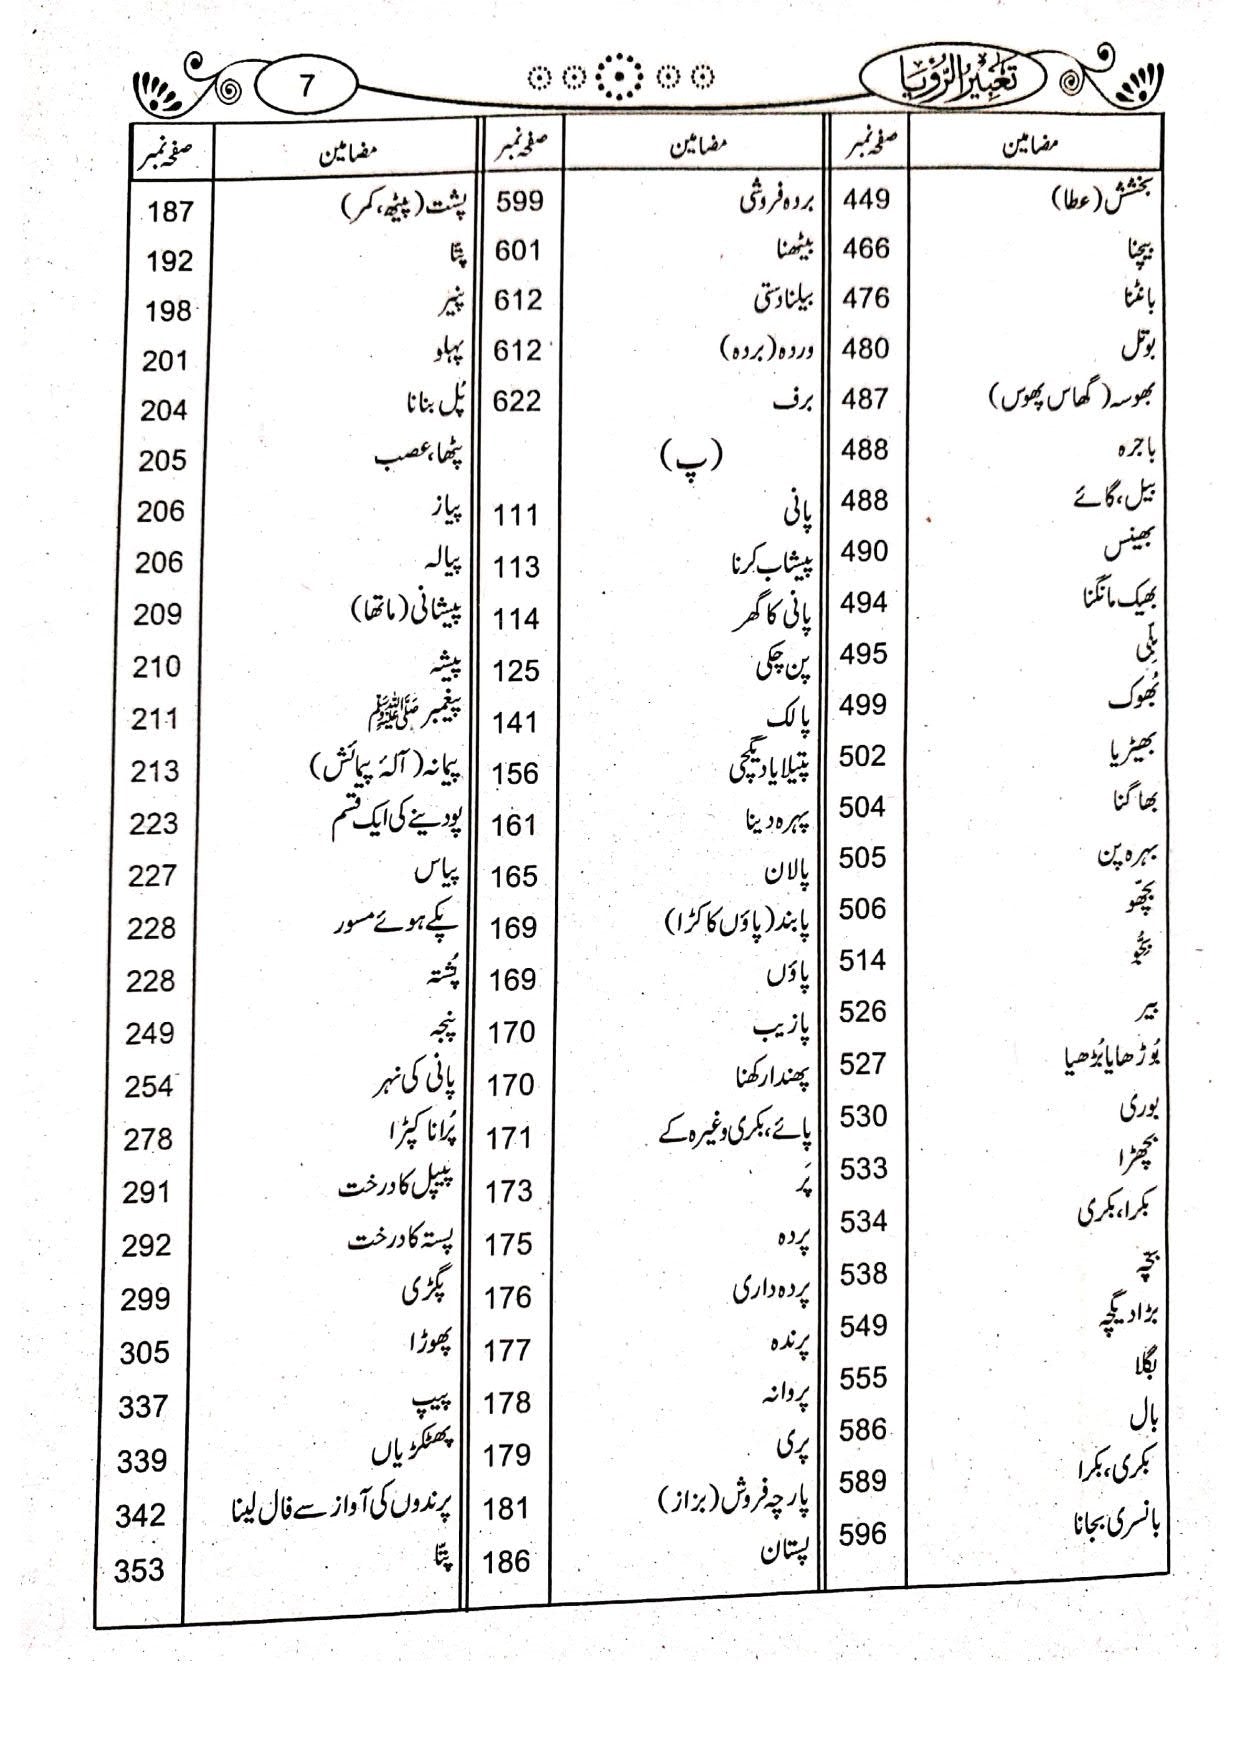 7
تعبیر الرّؤیا
مضامین صفحہ نمبر
بخشش (عطا) 449
بیچنا 466
بانٹنا 476
بوتل 480
بھوسہ (گھاس پھوس) 487
باجرہ 488
بیل، گائے 488
بھینس 490
بھیک مانگنا 494
بلّی 495
بُھوک 499
بھیڑیا 502
بھاگنا 504
بہرہ پن 505
بچّھو 506
بجُّو 514
بیر 526
بُوڑھا یا بُڑھیا 527
بوری 530
بچھڑا 533
بکرا، بکری 534
بچّہ 538
بڑا دیگچہ 549
بگلا 555
بال 586
بکری، بکرا 589
بانسری بجانا 596
مضامین صفحہ نمبر
بردہ فروشی 599
بیٹھنا 601
بیلنا دستی 612
وردہ (بردہ) 612
برف 622
(پ)
پانی 111
پیشاب کرنا 113
پانی کا گھر 114
پن چکی 125
پالک 141
پتیلا یا دیگچی 156
پہرہ دینا 161
پالان 165
پابند (پاؤں کا کڑا) 169
پاؤں 169
پازیب 170
پھندا رکھنا 170
پائے، بکری وغیرہ کے 171
پَر 173
پردہ 175
پردہ داری 176
پرندہ 177
پروانہ 178
پری 179
پارچہ فروش (بزاز) 181
پستان 186
مضامین صفحہ نمبر
پشت (پیٹھ، کمر) 187
پتّا 192
پنیر 198
پہلو 201
پُل بنانا 204
پٹھا، عصب 205
پیاز 206
پیالہ 206
پیشانی (ماتھا) 209
پیشہ 210
پیغمبر ﷺ 211
پیمانہ (آلۂ پیمائش) 213
پودینے کی ایک قسم 223
پیاس 227
پکے ہوئے مسور 228
پُشتہ 228
پنجہ 249
پانی کی نہر 254
پُرانا کپڑا 278
پیپل کا درخت 291
پستہ کا درخت 292
پگڑی 299
پھوڑا 305
پیپ 337
پھٹکڑیاں 339
پرندوں کی آواز سے فال لینا 342
پتّا 353